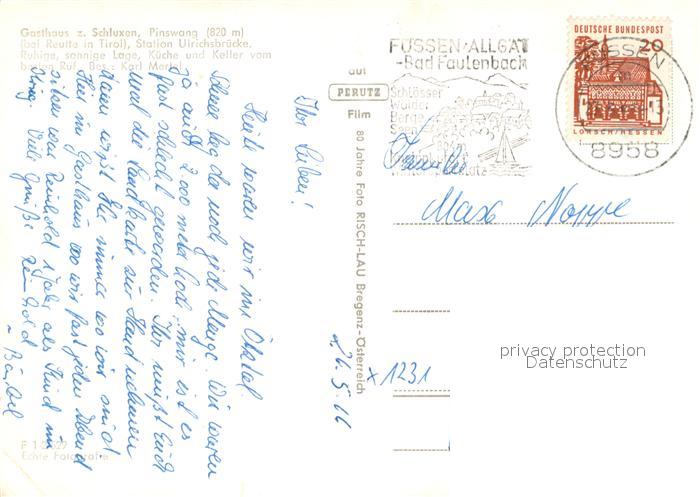 Gasthaus z. Schluxen, Pinswang (820 m)
(bei Reutte in Tirol), Station Ulrichsbrücke.
Ruhige, sonnige Lage, Küche und Keller vom
besten Ruf. Bes.: Karl
F 1
Echte Fotografie
auf
PERUTZ
Film
80 Jahre Foto RISCH-LAU Bregenz-Österreich
FÜSSEN-ALLGÄU
-Bad Faulenbach
Schlösser
Wälder
Berge
Seen
DEUTSCHE BUNDESPOST
20
LORSCH/HESSEN
FÜSSEN
8958
Ihr Lieben!
Heute waren wir im Ötztal.
Schnee lag da noch jede Menge. Wir waren
ja auch 2000 meter hoch, mir ist es
fast schlecht geworden. Ihr müßt Euch
mal die Landkarte zur Hand nehmen
dann wißt Ihr immer wo wir sind.
Hier im Gasthaus wo wir fast jeden Abend
sitzen war Reinhold 1 Jahr als Kind im
Krieg. Viele Grüße Reinhold
- Bärbel
24.5.66
x 1231
Familie
Max Noppe
privacy protection
Datenschutz